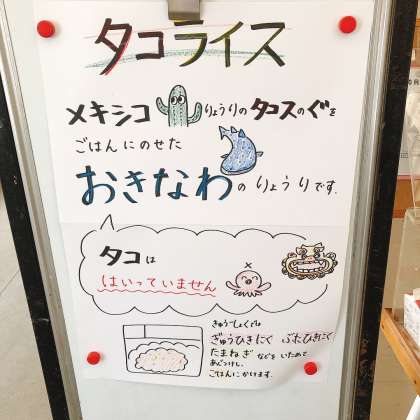 タコライス
メキシコりょうりのタコスのぐを
ごはんにのせた
おきなわのりょうりです.
タコは
はいっていません
きゅうしょくでは
ぎゅうひきにく ぶたひきにく
たまねぎ などを いためて
あじつけし、
ごはんにかけます.